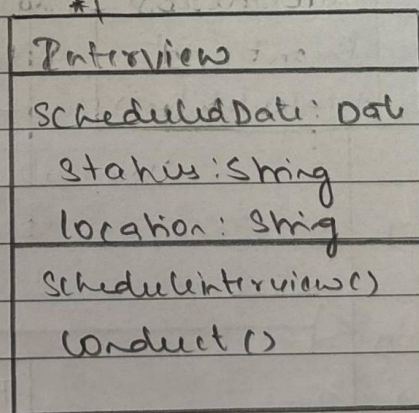 *
Interview
ScheduledDate: Dat
Status: String
location: String
Scheduleinterview()
Conduct ()